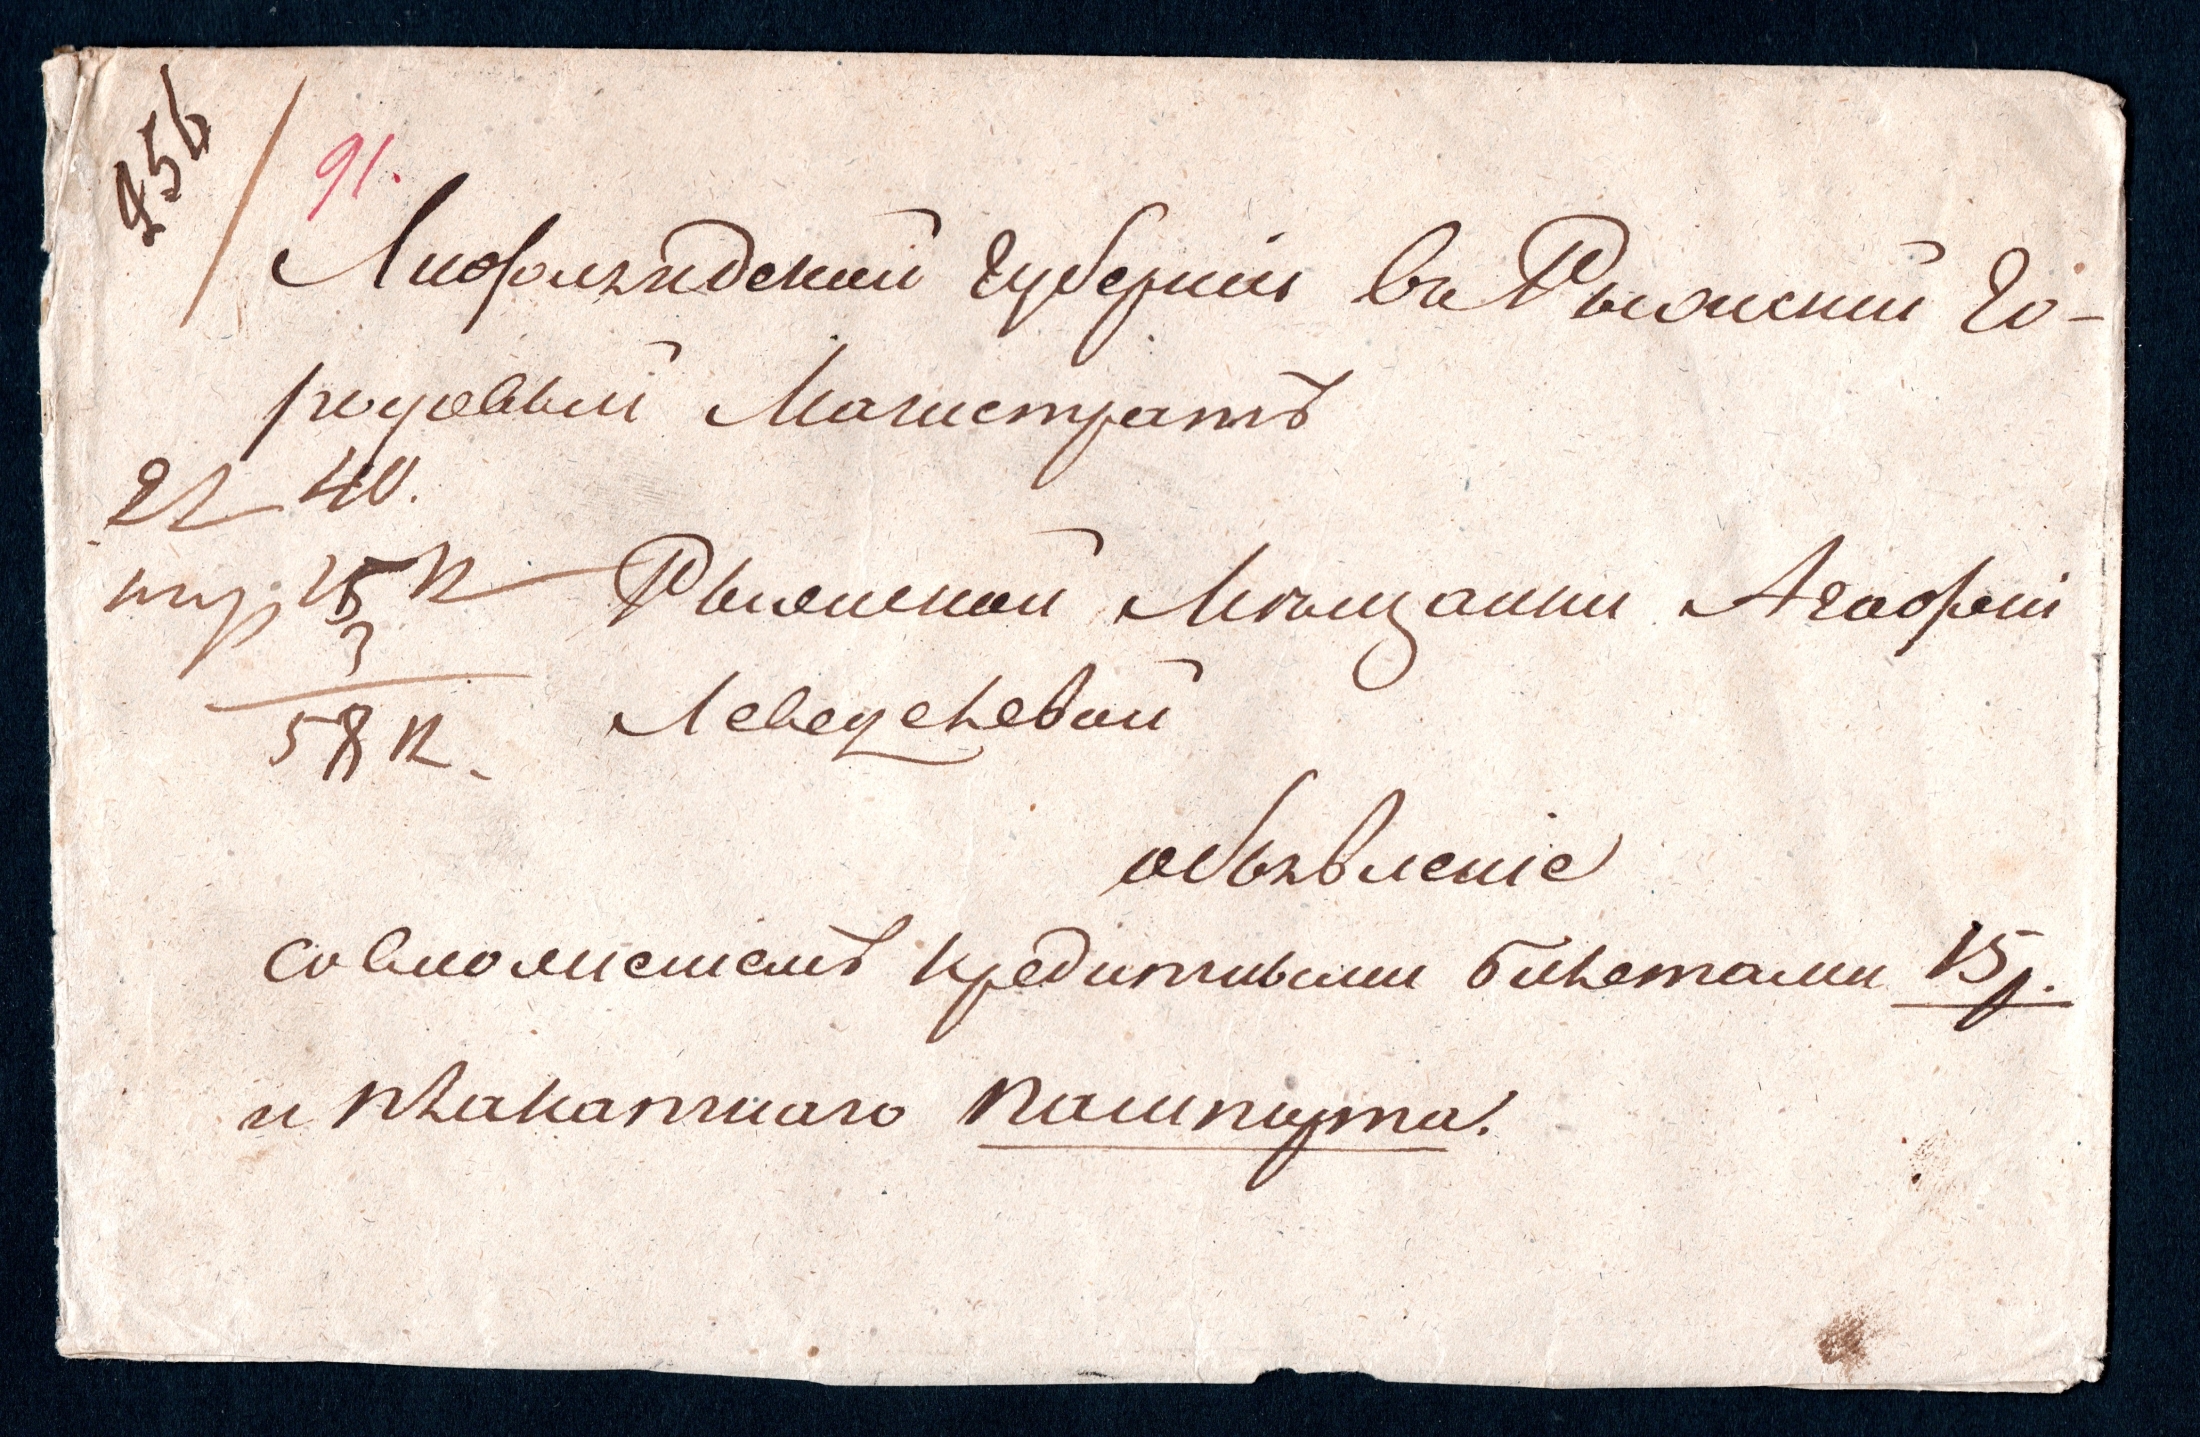 456
91.
Лифлянdской Губернiи въ Рыжский Го-
родовый Магистратъ
40.
15 к
3
58 к.
Рыжской Мѣщанки Агафьи
Лебеденевой
объявленiе
со вложенiемъ кредитными билетами 15 р.
и плакатнаго пашпорта.